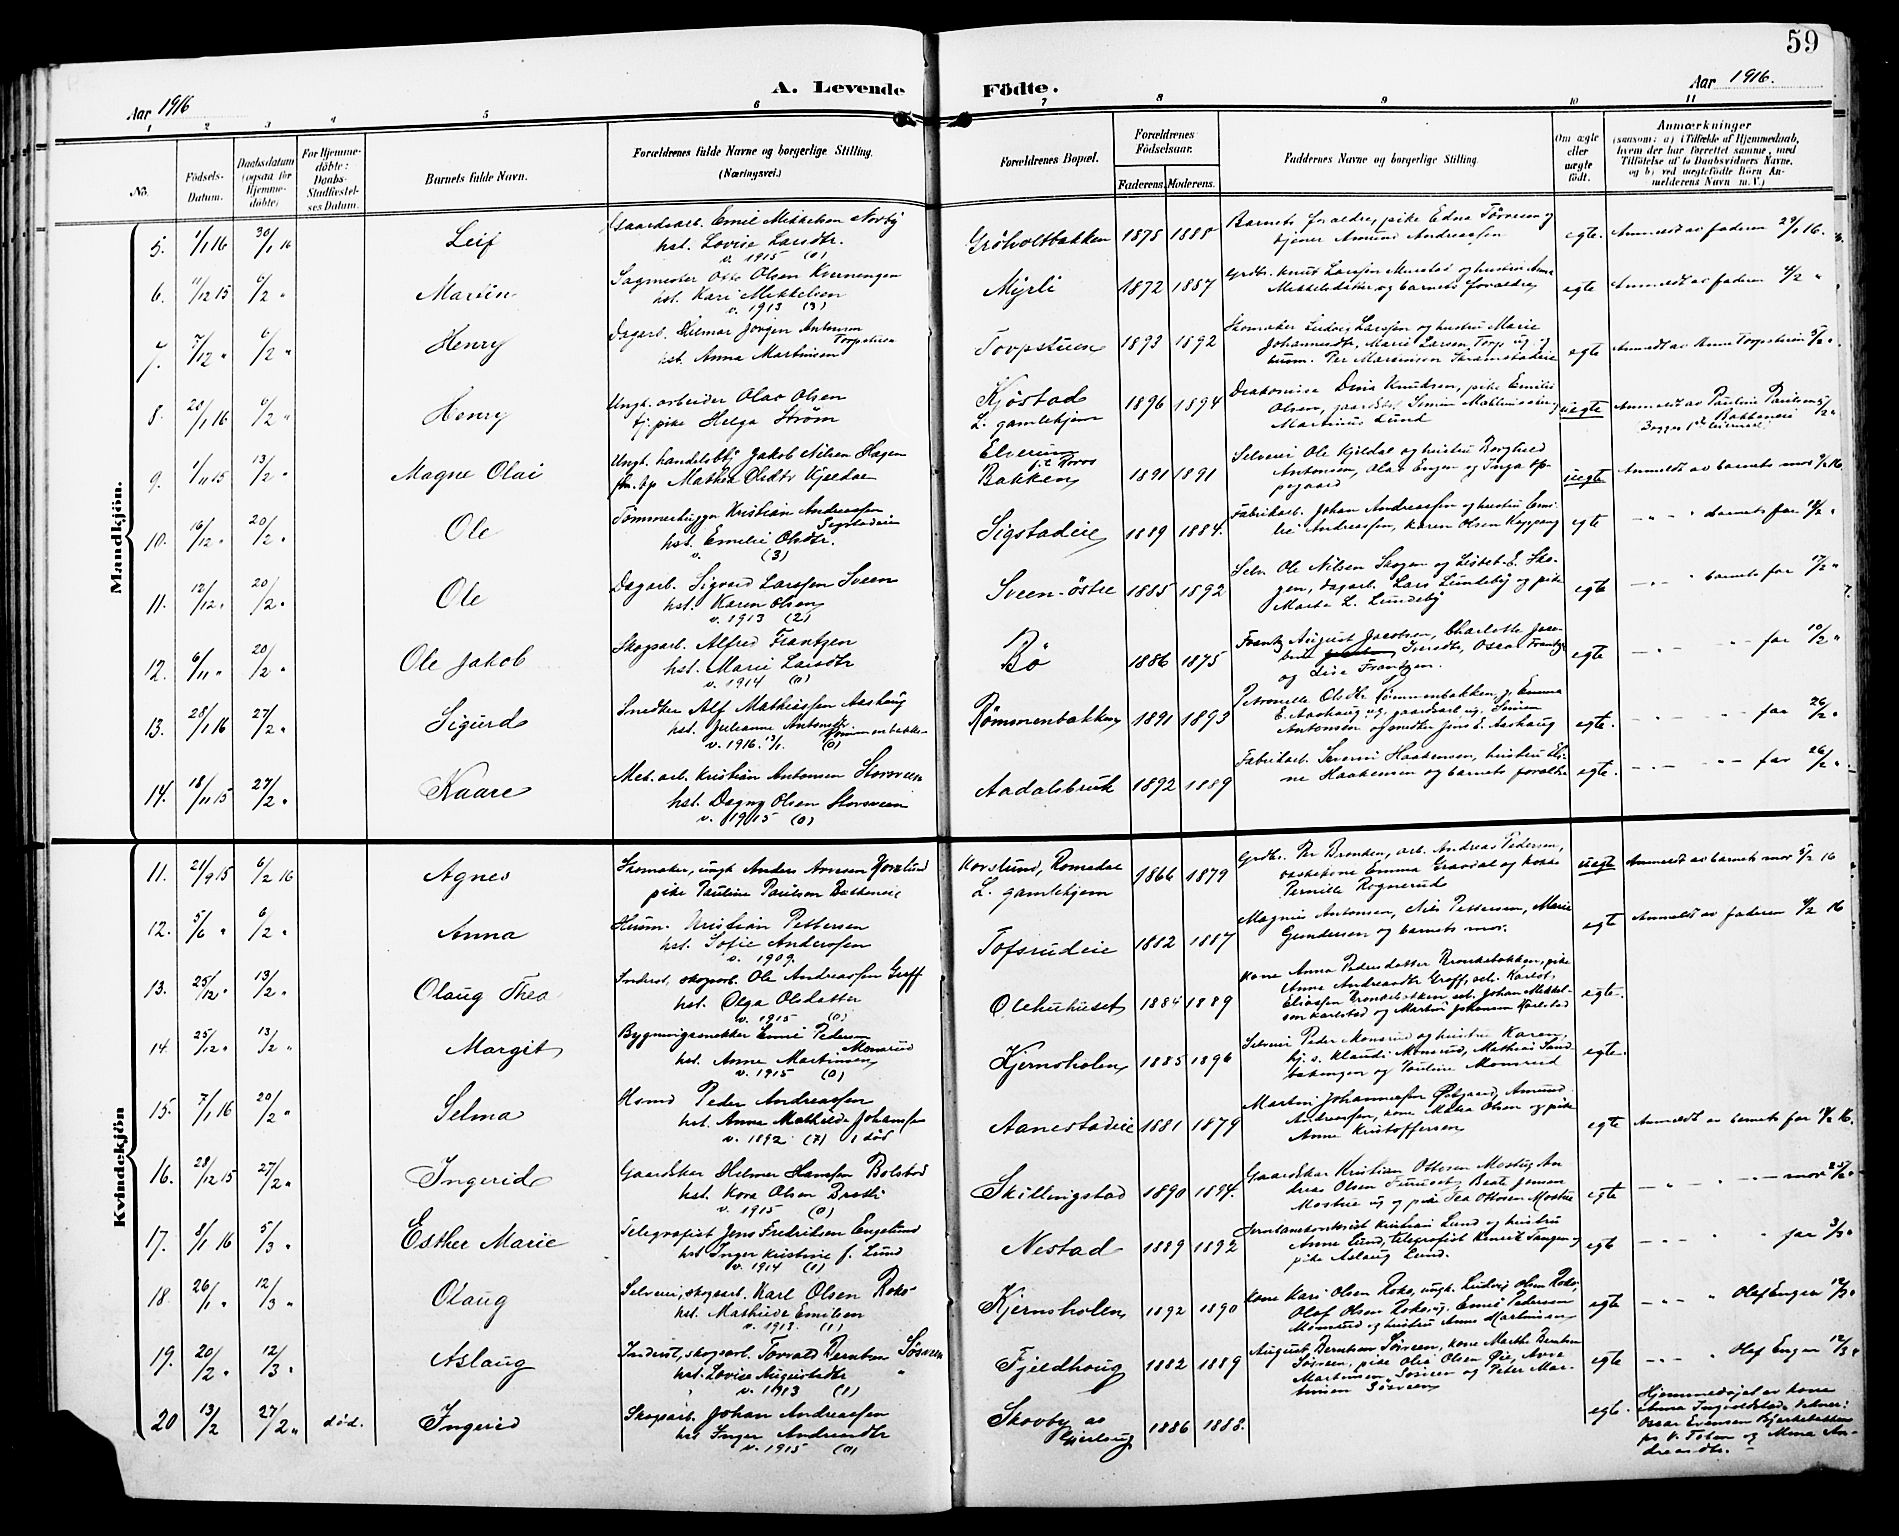 59
Aar 1916
A. Levende Födte.
Aar 1916.
1 2 3 4 5 6 7 8 9 10 11
No.
Födsels-Datum.
Daabsdatum (ogsaa for Hjemme-döbte)
For Hjemme-döbte: Daabs-Stadfæstel-ses Datum.
Barnets fulde Navn.
Forældrenes fulde Navne og borgerlige Stilling. (Næringsvei.)
Forældrenes Bopæl.
Forældrenes Födselsaar.
Faderens. Moderens.
Faddernes Navne og borgerlige Stilling.
Om ægte eller uægte födt.
Anmærkninger
(saasom: a) i Tilfælde af Hjemmedaab, hvem der har forrettet samme, med Tilföielse af to Daabsvidners Navne, og b) ved uægtefödte Börn Anmelderens Navn m. V.)
Mandkjön.
5. 1/1 16 30/1 16 Leif
Gaardsarb. Emil Mikkelsen Norby
hst. Lovise Larsdtr.
v. 1915 (0)
Gröholtbakken 1875 1885
Barnets foraldre, pike Edna Törresen og
tjener Amund Andreassen
egte. Anmeldt av faderen 29/1 16.
6. 11/12 15 6/2 " Martin
Sagmester Otto Olsen
hst. Kari Mikkelsen
v. 1913 (3)
Myrli 1872 1887
Mikkelsdatter og barnets foraldre
egte Anmeldt av faderen 4/2 "
7. 7/12 " 6/2 " Henry
Dagarb. Hilmar Jörgen Antonsen
Torpstuen
hst. Anna Martinsen
Torpstuen 1893 1892
Skomaker Ludvig Larssen og hustru Marie
Johannesdt., Marie Larsen Torp ug. og
egte Anmeldt av Anne Torpstuen 5/2 "
8. 20/1 16 6/2 " Henry
Ungk. arbeider Olav Olsen
tj. pike Helga Ström
Kjöstad
L. gamlehjem 1896 1894
Diakonisse Dina Knudsen, pike Emilie
Martinus Lund
uegte Anmeldt av Pauline Paulsen 5/2 "
Bakkeneie
9. 1/11 15 13/2 " Magne Olai
Ungk. handelsbtj. Jakob Nilsen Hagen
Elverum
Bakken 1891 1891
Selveier Ole Kjeldal og hustru Borghild
Antonsen, Olaf Engen og Inga
uegte Anmeldt av barnets mor
10. 16/12 " 20/2 " Ole
Tömmerhugger Kristian Andreassen
Sigstadeie
hst. Emelie Olsdtr.
v. (3)
Sigstadeie 1889 1884.
Fabrikarb. Johan Andreassen og hustru Emi-
lie Andreassen, Karen Olsen
egte — " — " barnets far 18/2 "
11. 12/12 " 20/2 " Ole
Dagarb. Sigvard Larssen Sveen
hst. Karen Olsen
v. 1913 (2)
Sveen-östre 1885 1892
Selv. Ole Nilsen Skogen og Lisbet E. Sko-
gen, dagarb. Lars Lundeby og pike
Marte L. Lundeby
egte — " — " barnets far 17/2 "
12. 6/11 " 20/2 " Ole Jakob
Skogsarb. Alfred Frantzen
hst. Marie Larsdtr
v. 1914 (0)
Bö 1886 1875
Frantz August Jacobsen, Charlotte Jaco-
og Lise Frantzen.
egte — " — " — far 10/2 "
13. 28/1 16 27/2 " Sigurd
Snedker Alf Mathiassen Aashaug
hst. Julianne Antonsdtr.
v. 1916. 13/1 (0)
Römmenbakken 1891 1893
Petronelle Olsdtr. Römmenbakken, g. Emma
E. Aashaug, ug. gaardsarb. ug. Simen
Antonsen og snedker Jens E. Aashaug
egte. — " — " far 26/2 "
14. 18/11 15 27/2 " Kaare
Mek. arb. Kristian Antonsen Storsveen
hst. Dagny Olsen Storsveen
v. 1915 (0)
Aadalsbruk 1892 1889
Fabrikarb. Severin Haakensen, hustru
Haakensen og barnets foraldre
egte. — " — " far 26/2 "
Kvindekjön
11. 21/9 15 6/2 16 Agnes
Skomaker, ungk Anders Arnesen Horslund
pike Pauline Paulsen Bakkeneie
Horslund, Romedal
L. gamlehjem 1866 1879
Grdbr. Per Bronken, arb. Andreas Pedersen,
vaskekone Emma Gravdal og kokke
Pernille Rognerud
uegte Anmeldt av barnets mor 5/2 16
12. 5/6 " 6/2 " Anna
Husm. Kristian Pettersen
hst. Sofie Anderssen
v. 1909.
Tofsrudeie 1882 1887
Magnus Antonsen, Nils Pettersen, Marie
Gundersen og barnets mor.
egte Anmeldt av faderen 4/2 16
13. 25/12 " 13/2 " Olaug Thea
Inderst, skogarb. Ole Andreassen Graff
hst. Olga Olsdatter
v. 1915 (0)
Olehuhuset 1884 1889
Kone Anna Pedersdatter Bronkebakken, pike
Anne Andreasdtr Graff, selv. Karlst,
Eliassen Bronkebakken, selv. Johan Mikkel-
sen Karlstad og Martin Johansen Karlstad
egte.
14. 25/12 " 13/2 " Margit
Bygningssnekker Emil Pedersen
Monsrud
hst. Anne Martinsen
v. 1915 (0)
Kjernsholen 1885 1896
Selveier Peder Monsrud og hustru Karen,
hj. s. Klaudi Monsrud, Mathias Sand-
bakengen og Pauline Monsrud
egte.
15. 7/1 16 20/2 " Selma
Husmd Peder Andreassen
hst. Anne Mathilde Johansen
v. 1892 (7) 1 död
Aanestadeie 1881 1879
Martin Johannessen Östgaard, Amund
Andreassen, kone Maria Olsen og pike
Anne Kristoffersen
egte Anmeldt av barnets far 19/2 16.
16. 28/12 15 27/2 " Ingerid
Gaardskar Helmer Hanssen Bolstad
hst. Kora Olsen Bratli
v. 1915 (0)
Skillingstad 1890 1894.
Gaardskar Kristian Ottesen Mostue, An-
dreas Olsen Furuset, Beate Jensen
Mostue ug og pike Tea Ottesen Mostue
egte — " — " — mor 25/2 "
17. 8/1 16 5/3 " Esther Marie
Telegrafist Jens Fredriksen Engelund
hst Inger Kristine f. Lund
v. 1914 (1)
Nestad 1889 1892
Jernbanekontorist Kristian Lund og hustru
Anne Lund, telegrafist Henrik Tangen og
pike Aslaug Lund.
egte — " " " far 3/3 "
18. 26/1 " 12/3 " Olaug
Selveier, skogsarb. Karl Olsen Roko
hst. Mathilde Emilsen
v. 1913. (1)
Kjernsholen 1892 1890
Kone Kari Olsen Roko, ungk. Ludvig Olsen Roko,
Olaf Olsen Roko, ug. Emil Pedersen
Monsrud og hustru Anne Martinsen
egte — " — " Olaf Engen 12/3 "
19. 20/2 " 12/3 " Aslaug
Inderst, skogsarb. Torvald Berntsen Sörsveen
hst. Lovise Augustsdtr "
v. 1913 (1)
Fjeldhaug 1882 1889
August Berntsen Sörsveen, kone Marthe Berntsen
Sörsveen, pike Olia Olsen Öie, Arne
Martinsen Sörsveen og Peter Mar-
tinsen Sörsveen
egte — " — " Olaf Engen 12/3 "
20 13/2 27/2 " död. Ingerid
Skogsarb. Johan Andreassen
hst Inger Andreasdtr
v. 1915 (0)
Skovby av
1886 1888.
egte. Hjemmedöpt av kone
Anna Ingvoldstad. Vitner:
Oscar Evensen Bjerkebakken
og Mina An-
dreasdtr.